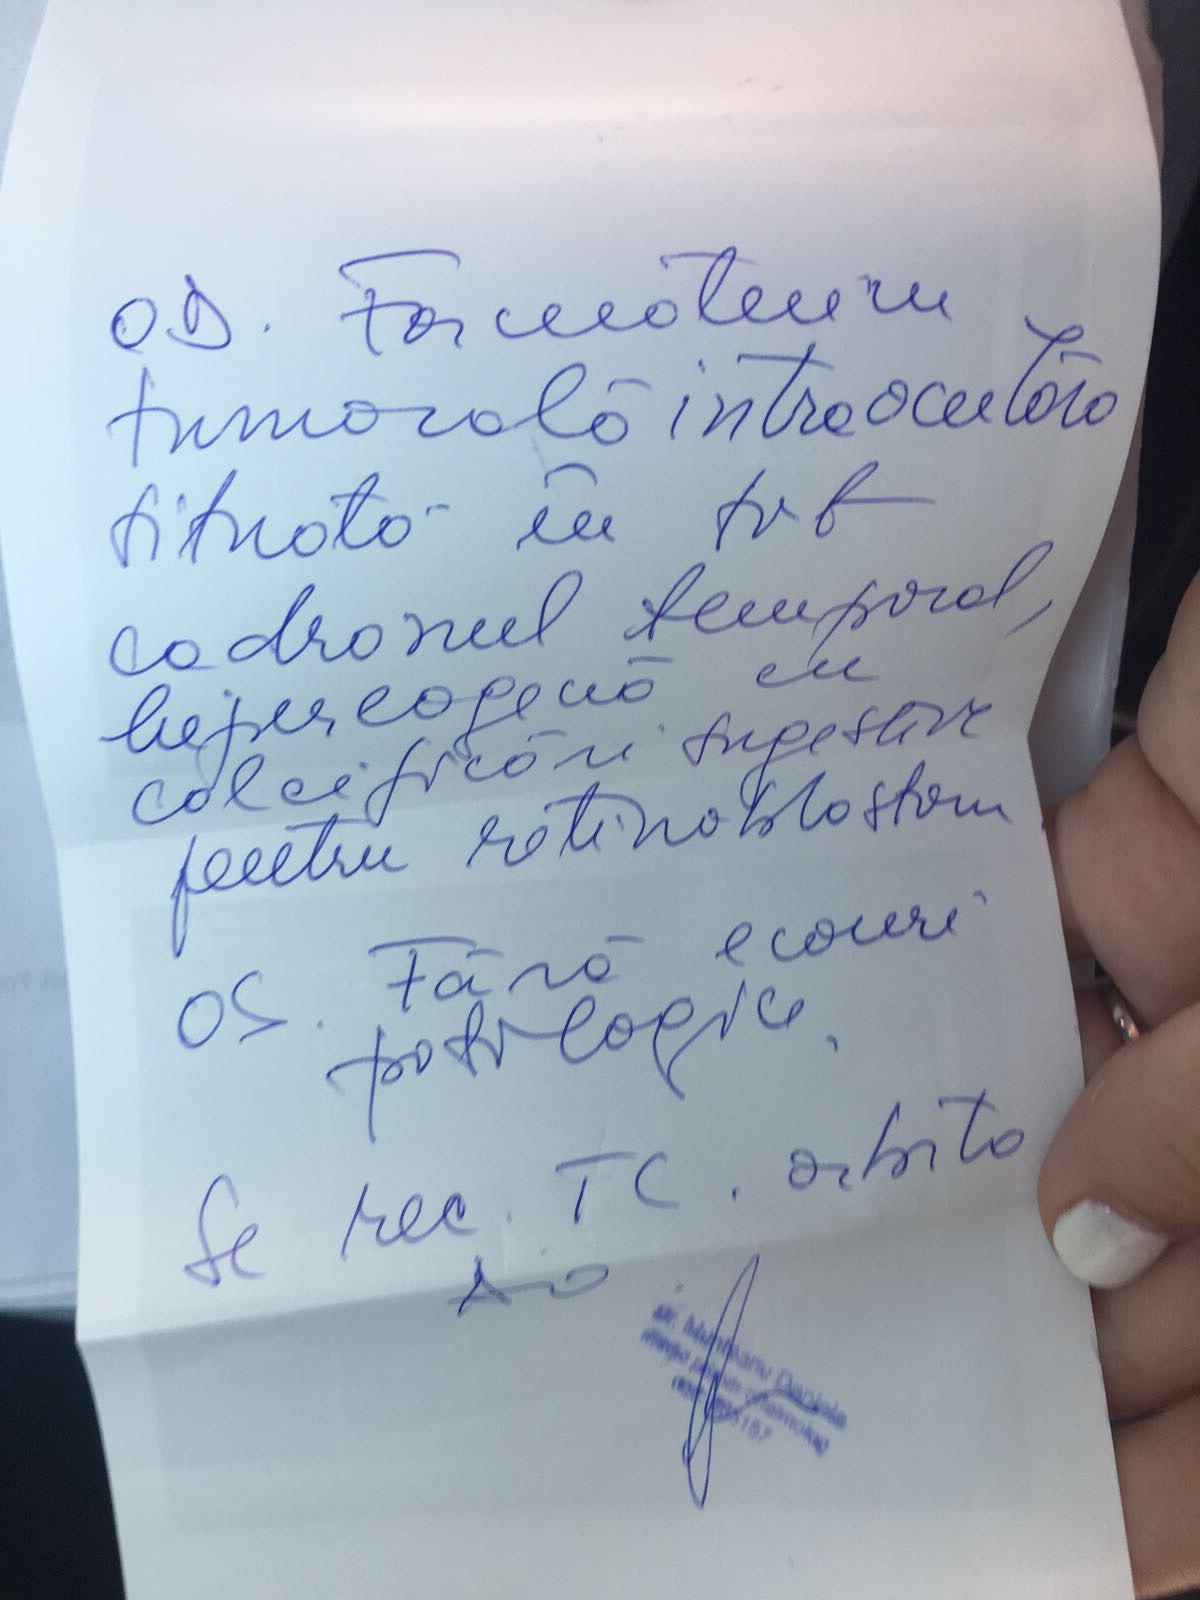 OD. Formațiune
tumorală intraoculară
situată în tot
cadranul temporal,
hiperecogenă cu
calcificări sugestive
pentru retinoblastom
OS. Fără ecouri
patologice.
Se rec. TC. orbito
Dr. Munteanu Daniela
medic primar oftalmolog